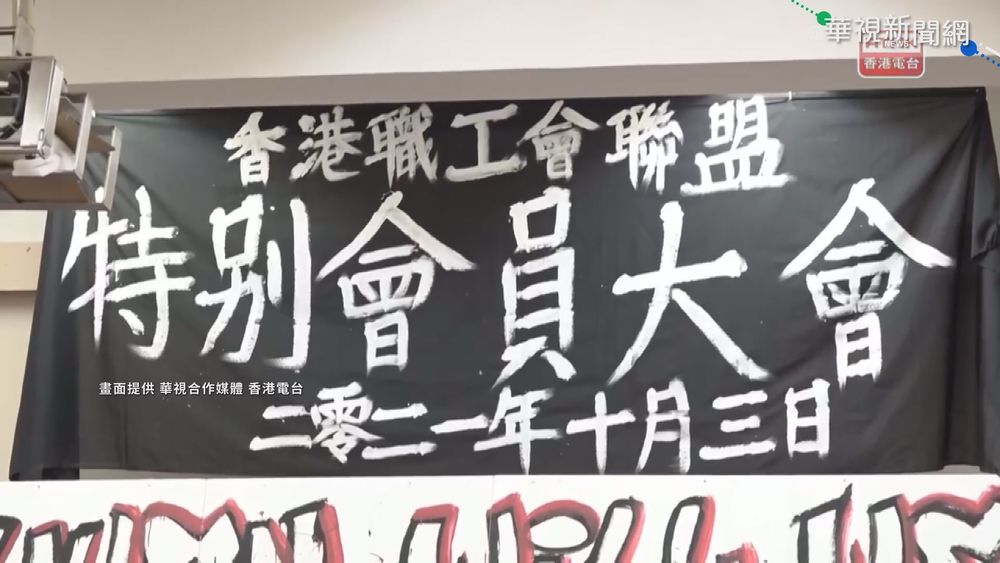 華視新聞網
NEWS
香港電台
香港職工會聯盟
特別會員大會
畫面提供 華視合作媒體 香港電台
二零二一年十月三日